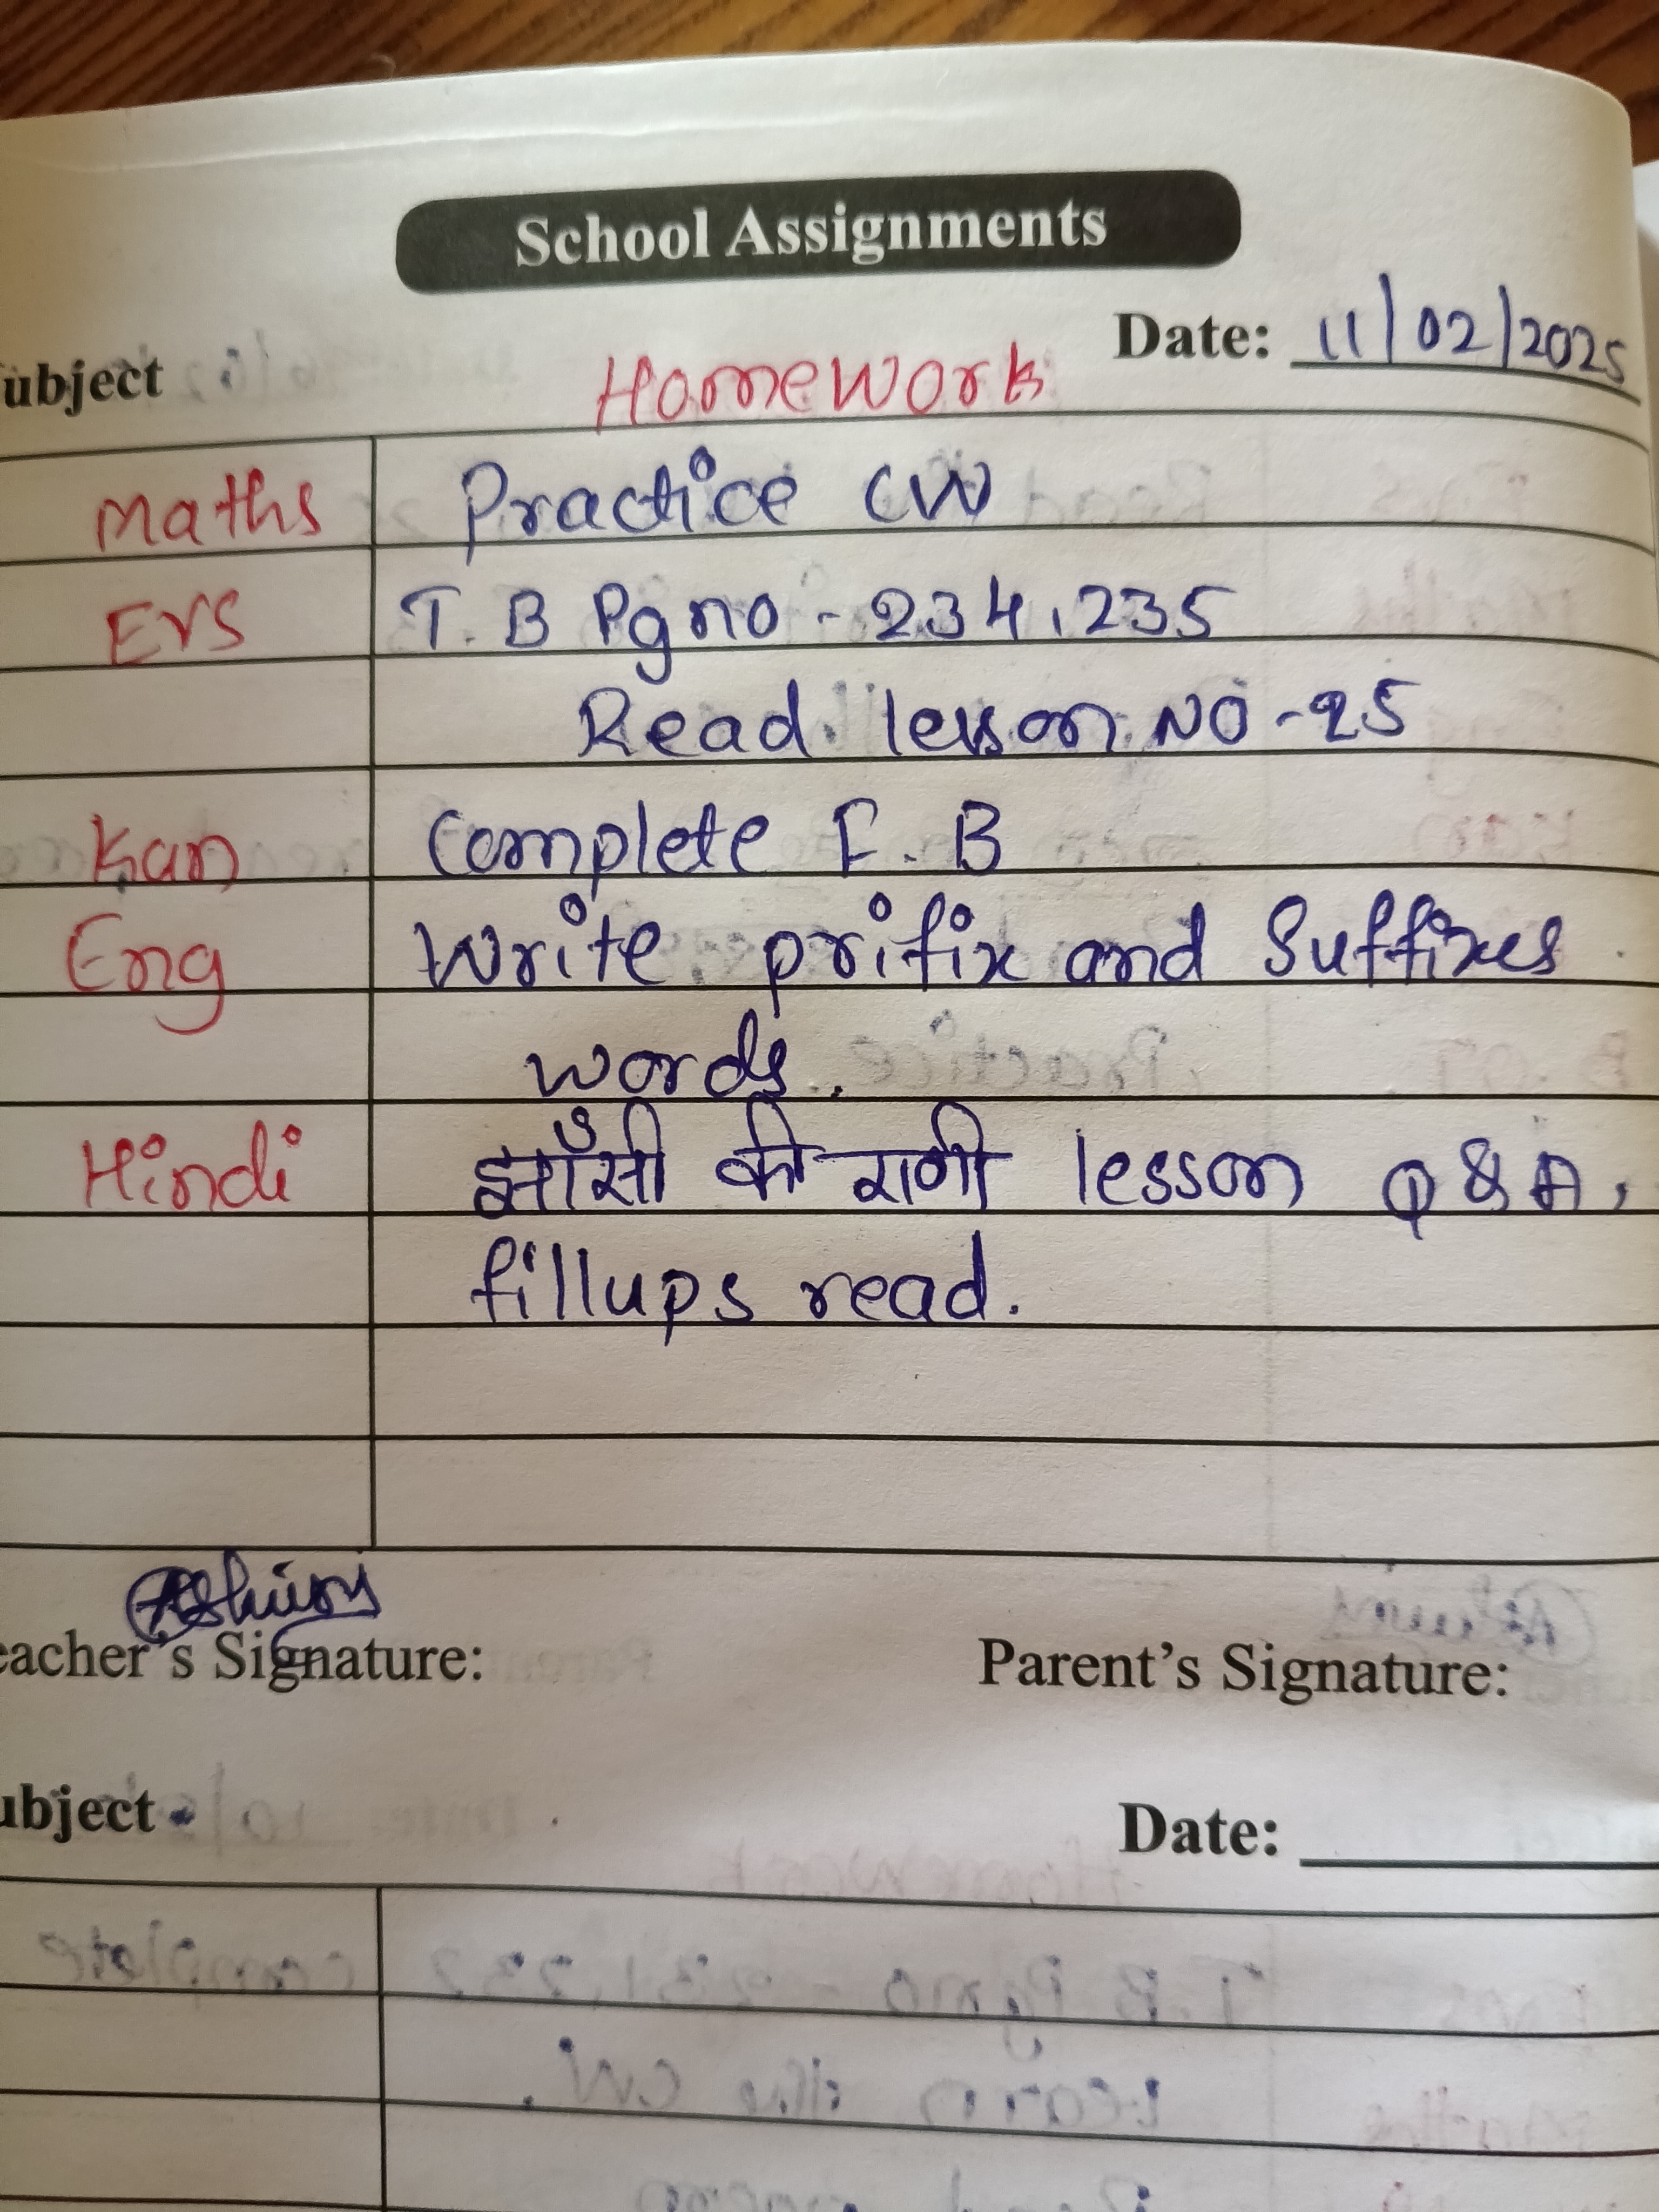 School Assignments
Date: 11/02/2025
ubject HomeWork
Maths Practice CW
EVS T.B Pg no - 234,235
Read lesson NO - 25
Kan Complete F.B
Eng Write prifix and Suffixes
words.
Hindi झाँसी की राणी lesson Q & A,
fillups read.
eacher's Signature: Parent's Signature:
ubject Date: